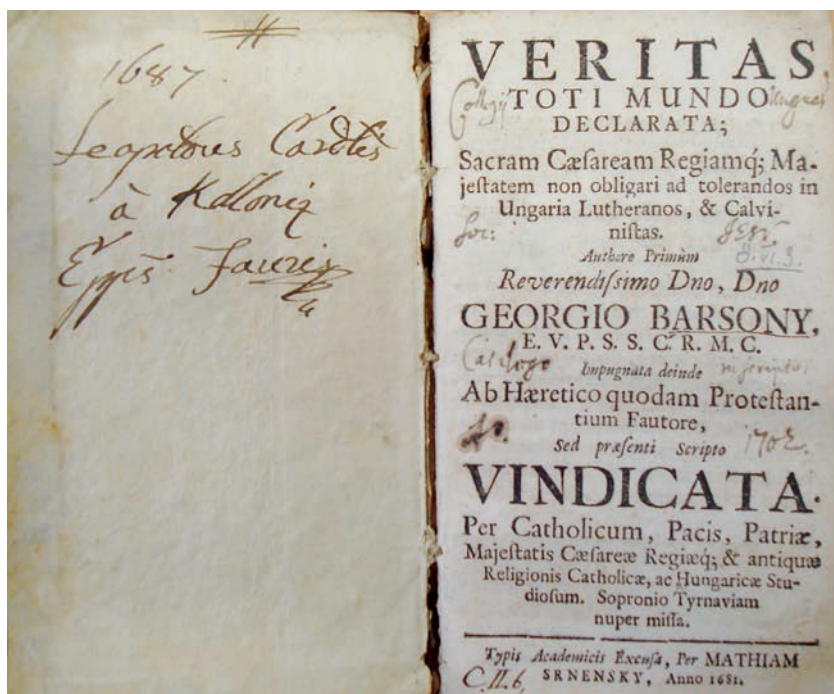 1687
Leopoldus Carolus
à Kolloniz
Epps Jaurin
VERITAS,
TOTI MUNDO
Collegij Ungar
DECLARATA;
Sacram Cæſaream Regiamq́; Ma-
jeſtatem non obligari ad tolerandos in
Ungaria Lutheranos, & Calvi-
niſtas.
Soc: JESU
Authore Primùm
Reverendiſſimo Dno, Dno
GEORGIO BARSONY,
E. V. P. S. S. C. R. M. C.
Catalogo inscriptus
Impugnata deinde
Ab Hæretico quodam Proteſtan-
tium Fautore,
Sed præſenti Scripto
1702.
VINDICATA.
Per Catholicum, Pacis, Patriæ,
Majeſtatis Cæſareæ Regiæq́; & antiquæ
Religionis Catholicæ, ac Hungaricæ Stu-
dioſum. Sopronio Tyrnaviam
nuper miſſa.
Typis Academicis Excuſa, Per MATHIAM
SRNENSKY, Anno 1681.